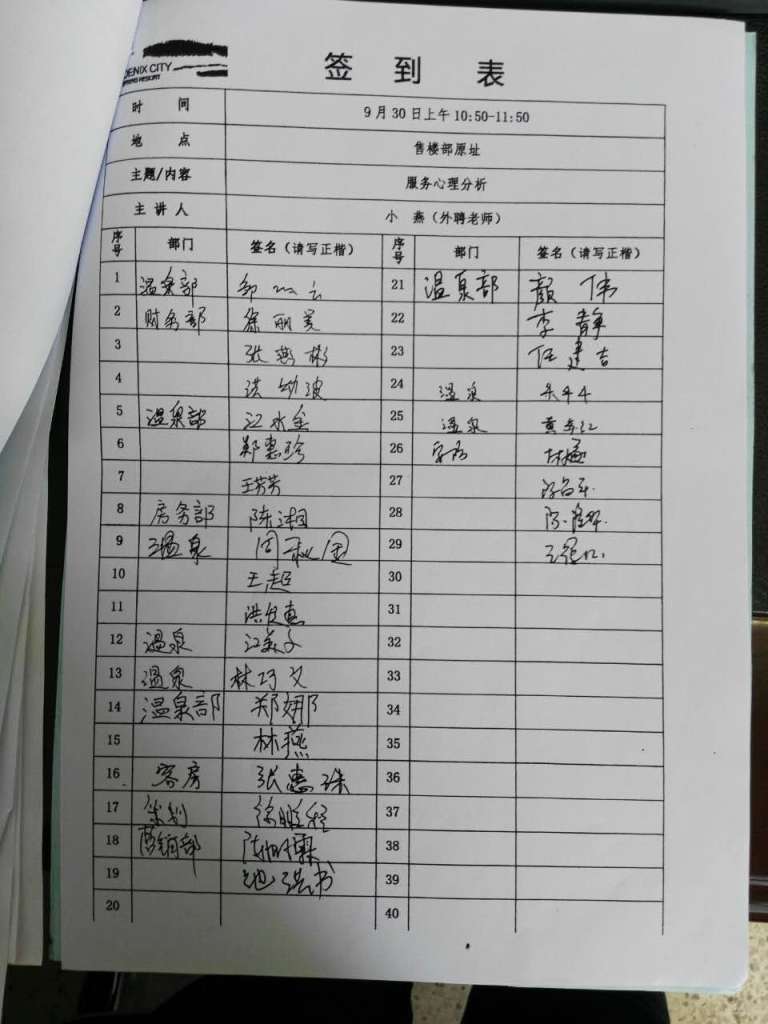 ENIX CITY
签 到 表
时 间 9月30日上午10:50-11:50
地 点 售楼部原址
主题/内容 服务心理分析
主讲人 小 燕（外聘老师）
序号 部门 签名（请写正楷） 序号 部门 签名（请写正楷）
1 温泉部 21 温泉部 颜伟
2 财务部 徐丽 22 李静
3 张燕彬 23 任建吉
4 洪幼波 24 温泉
5 温泉部 江水金 25 温泉 黄
6 郑惠珍 26 林
7 王芳芳 27
8 房务部 陈湘 28 陈
9 温泉 周 29 王
10 王超 30
11 洪 惠 31
12 温泉 江 32
13 温泉 林巧文 33
14 温泉部 郑娜 34
15 林燕 35
16 客房 张惠珠 36
17 策划 徐 37
18 营销部 陈 霖 38
19 池 书 39
20 40